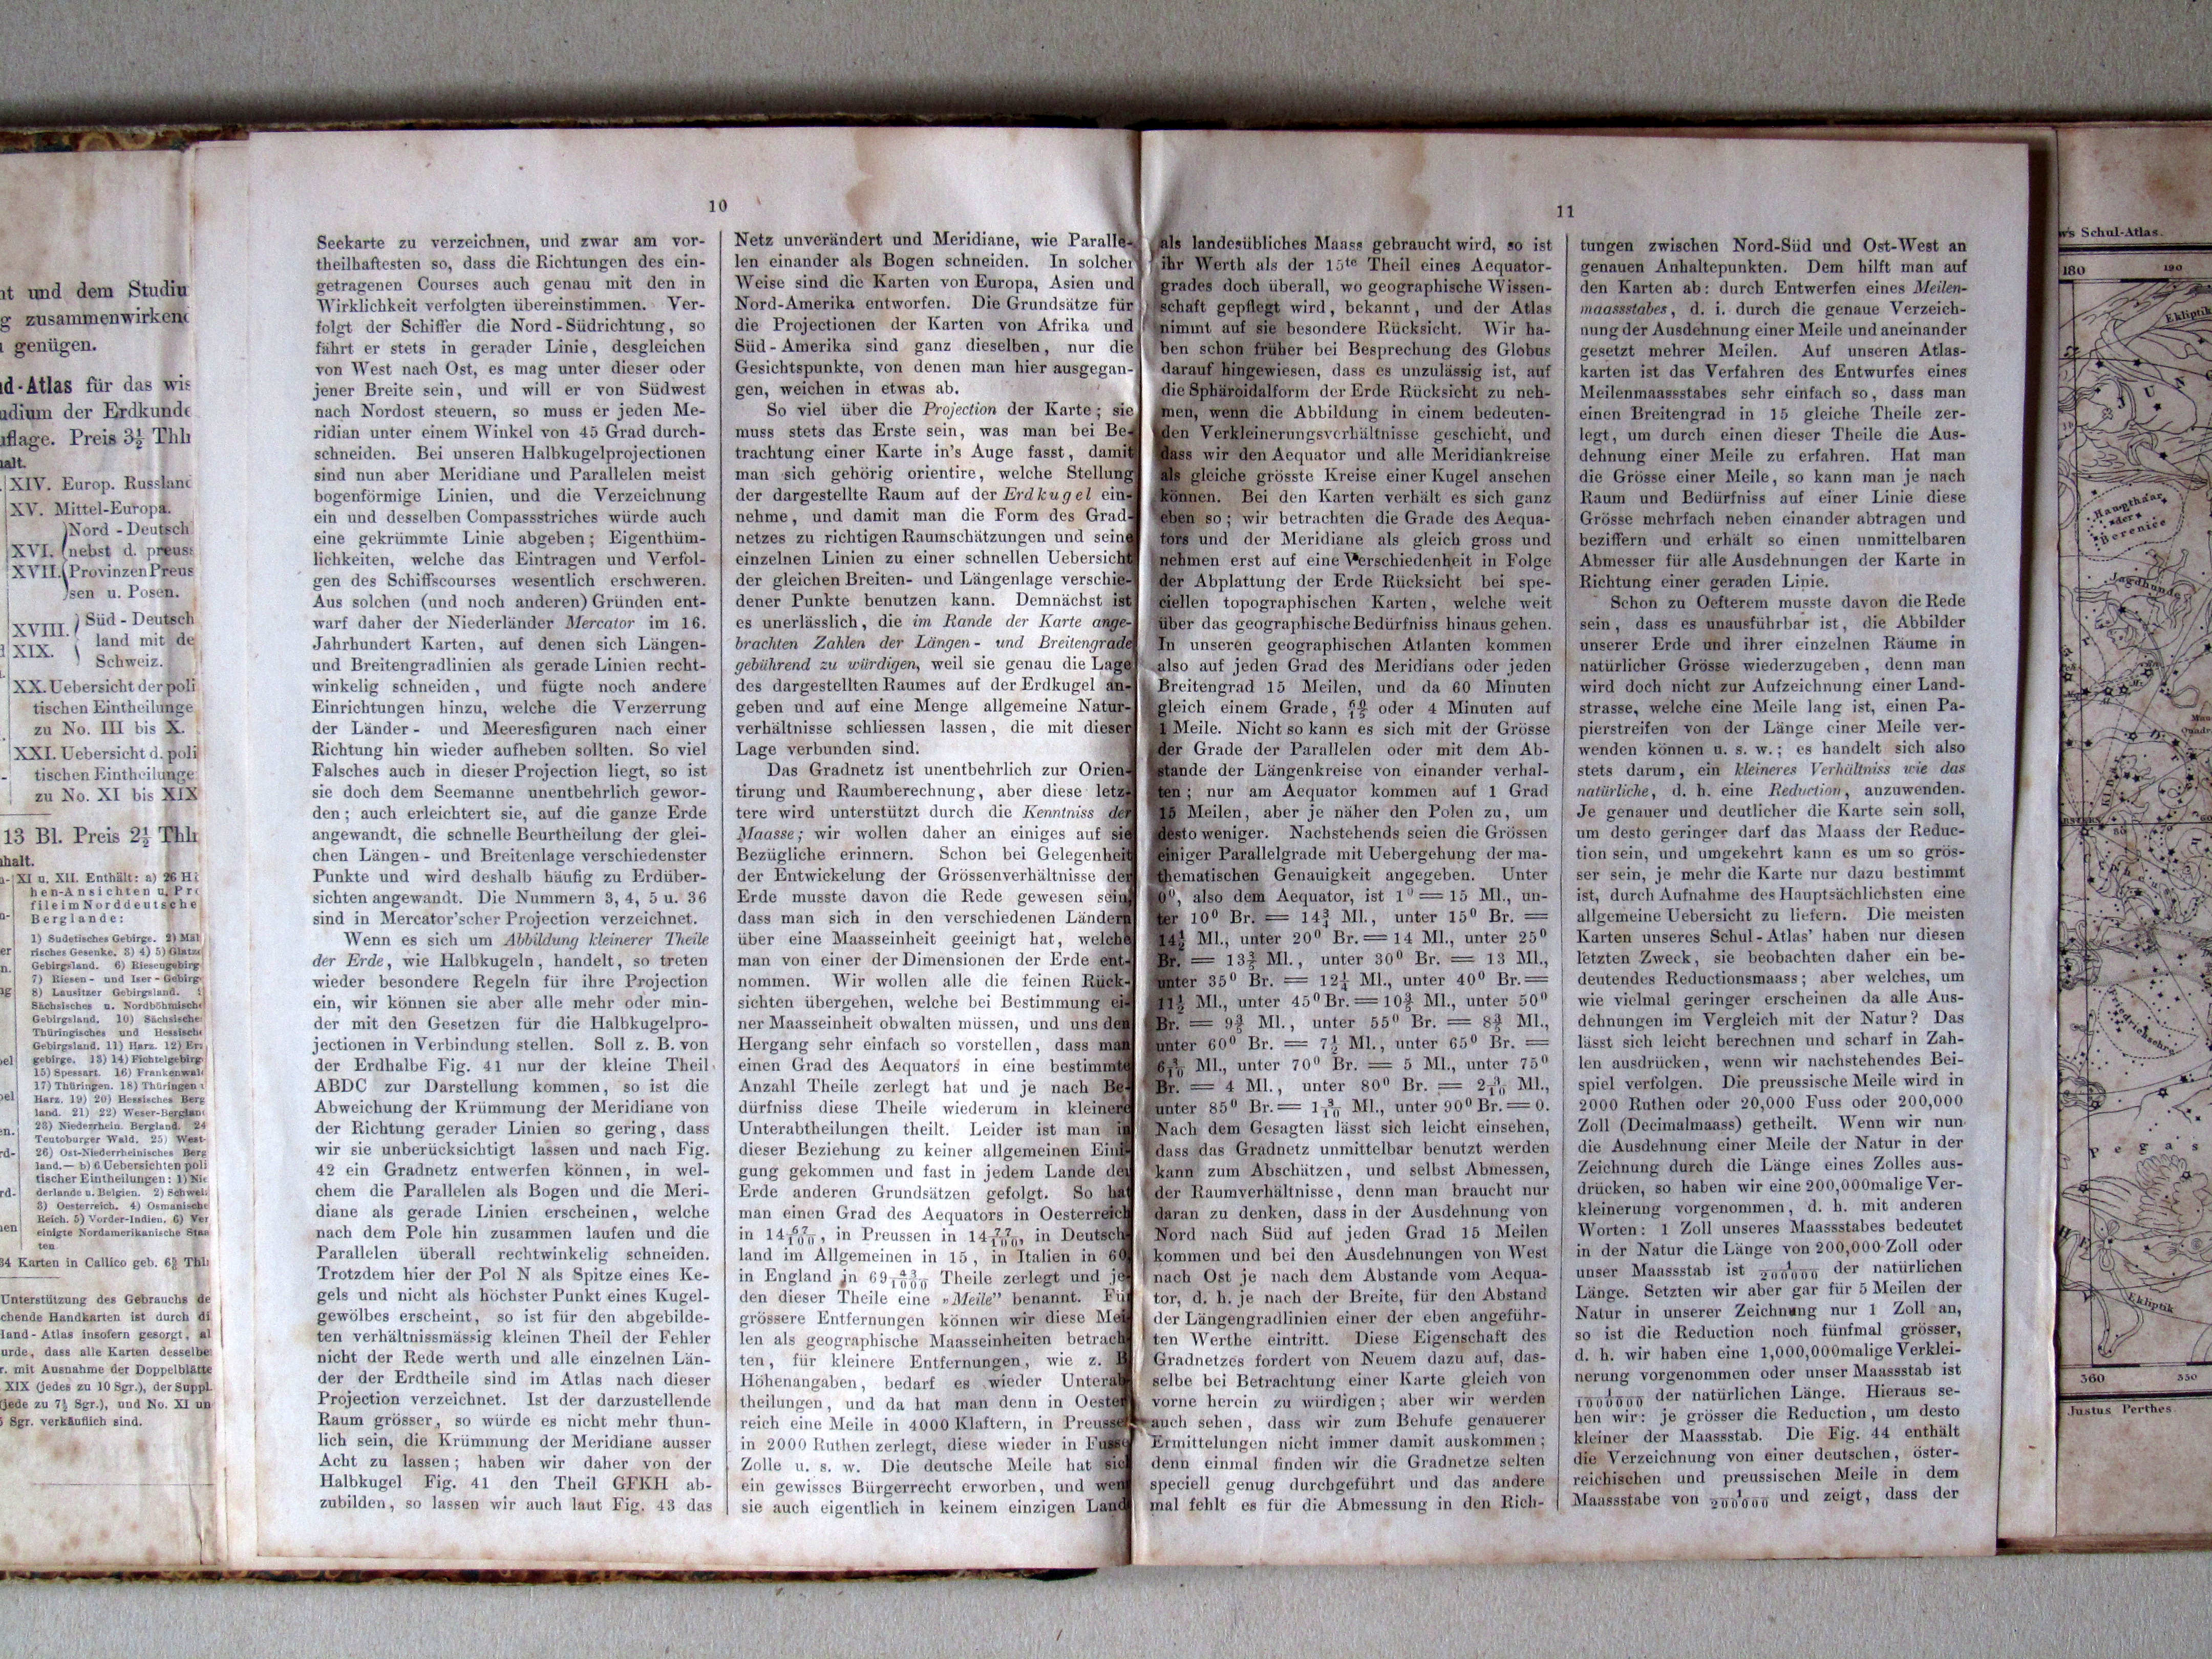 nt und dem Studiu
g zusammenwirkend
genügen.
d-Atlas für das wis
udium der Erdkunde
uflage. Preis 3½ Thlr
alt.
XIV. Europ. Russland
XV. Mittel-Europa.
XVI. Nord-Deutsch
nebst d. preuss
XVII. Provinzen Preus
sen u. Posen.
XVIII. Süd-Deutsch
XIX. land mit de
Schweiz.
XX. Uebersicht der poli
tischen Eintheilunge
zu No. III bis X.
XXI. Uebersicht d. poli
tischen Eintheilunge
zu No. XI bis XIX
13 Bl. Preis 2½ Thlr
halt.
XI u. XII. Enthält: a) 26 Hö
hen-Ansichten u. Pro
file im Norddeutsche
Berglande:
1) Sudetisches Gebirge. 2) Mäh
risches Gesenke. 3) 4) 5) Glatze
Gebirgsland. 6) Riesengebirg
7) Riesen- und Iser-Gebirge
8) Lausitzer Gebirgsland.
Sächsisches u. Nordböhmische
Gebirgsland. 10) Sächsische
Thüringisches und Hessische
Gebirgsland. 11) Harz. 12) Erz
gebirge. 13) 14) Fichtelgebirge
15) Spessart. 16) Frankenwald
17) Thüringen. 18) Thüringen
Harz. 19) 20) Hessisches Berg
land. 21) 22) Weser-Bergland
23) Niederrhein. Bergland. 24
Teutoburger Wald. 25) West-
26) Ost-Niederrheinisches Berg
land.— b) 6 Uebersichten poli
tischer Eintheilungen: 1) Nie
derlande u. Belgien. 2) Schweiz
3) Oesterreich. 4) Osmanische
Reich. 5) Vorder-Indien. 6) Ver
einigte Nordamerikanische Staa
ten
34 Karten in Callico geb. 6⅔ Thlr
Unterstützung des Gebrauchs de
chende Handkarten ist durch di
land-Atlas insofern gesorgt, al
urde, dass alle Karten desselbe
r. mit Ausnahme der Doppelblätte
XIX (jedes zu 10 Sgr.), der Suppl.
(jede zu 7½ Sgr.), und No. XI un
5 Sgr. verkäuflich sind.
10
Seekarte zu verzeichnen, und zwar am vor-
theilhaftesten so, dass die Richtungen des ein-
getragenen Courses auch genau mit den in
Wirklichkeit verfolgten übereinstimmen. Ver-
folgt der Schiffer die Nord-Südrichtung, so
fährt er stets in gerader Linie, desgleichen
von West nach Ost, es mag unter dieser oder
jener Breite sein, und will er von Südwest
nach Nordost steuern, so muss er jeden Me-
ridian unter einem Winkel von 45 Grad durch-
schneiden. Bei unseren Halbkugelprojectionen
sind nun aber Meridiane und Parallelen meist
bogenförmige Linien, und die Verzeichnung
ein und desselben Compassstriches würde auch
eine gekrümmte Linie abgeben; Eigenthüm-
lichkeiten, welche das Eintragen und Verfol-
gen des Schiffscourses wesentlich erschweren.
Aus solchen (und noch anderen) Gründen ent-
warf daher der Niederländer Mercator im 16.
Jahrhundert Karten, auf denen sich Längen-
und Breitengradlinien als gerade Linien recht-
winkelig schneiden, und fügte noch andere
Einrichtungen hinzu, welche die Verzerrung
der Länder- und Meeresfiguren nach einer
Richtung hin wieder aufheben sollten. So viel
Falsches auch in dieser Projection liegt, so ist
sie doch dem Seemanne unentbehrlich gewor-
den; auch erleichtert sie, auf die ganze Erde
angewandt, die schnelle Beurtheilung der glei-
chen Längen- und Breitenlage verschiedenster
Punkte und wird deshalb häufig zu Erdüber-
sichten angewandt. Die Nummern 3, 4, 5 u. 36
sind in Mercator'scher Projection verzeichnet.
Wenn es sich um Abbildung kleinerer Theile
der Erde, wie Halbkugeln, handelt, so treten
wieder besondere Regeln für ihre Projection
ein, wir können sie aber alle mehr oder min-
der mit den Gesetzen für die Halbkugelpro-
jectionen in Verbindung stellen. Soll z. B. von
der Erdhalbe Fig. 41 nur der kleine Theil
ABDC zur Darstellung kommen, so ist die
Abweichung der Krümmung der Meridiane von
der Richtung gerader Linien so gering, dass
wir sie unberücksichtigt lassen und nach Fig.
42 ein Gradnetz entwerfen können, in wel-
chem die Parallelen als Bogen und die Meri-
diane als gerade Linien erscheinen, welche
nach dem Pole hin zusammen laufen und die
Parallelen überall rechtwinkelig schneiden.
Trotzdem hier der Pol N als Spitze eines Ke-
gels und nicht als höchster Punkt eines Kugel-
gewölbes erscheint, so ist für den abgebilde-
ten verhältnissmässig kleinen Theil der Fehler
nicht der Rede werth und alle einzelnen Län-
der der Erdtheile sind im Atlas nach dieser
Projection verzeichnet. Ist der darzustellende
Raum grösser, so würde es nicht mehr thun-
lich sein, die Krümmung der Meridiane ausser
Acht zu lassen; haben wir daher von der
Halbkugel Fig. 41 den Theil GFKH ab-
zubilden, so lassen wir auch laut Fig. 43 das
Netz unverändert und Meridiane, wie Paralle-
len einander als Bogen schneiden. In solcher
Weise sind die Karten von Europa, Asien und
Nord-Amerika entworfen. Die Grundsätze für
die Projectionen der Karten von Afrika und
Süd-Amerika sind ganz dieselben, nur die
Gesichtspunkte, von denen man hier ausgegan-
gen, weichen in etwas ab.
So viel über die Projection der Karte; sie
muss stets das Erste sein, was man bei Be-
trachtung einer Karte in's Auge fasst, damit
man sich gehörig orientire, welche Stellung
der dargestellte Raum auf der Erdkugel ein-
nehme, und damit man die Form des Grad-
netzes zu richtigen Raumschätzungen und seine
einzelnen Linien zu einer schnellen Uebersicht
der gleichen Breiten- und Längenlage verschie-
dener Punkte benutzen kann. Demnächst ist
es unerlässlich, die im Rande der Karte ange-
brachten Zahlen der Längen- und Breitengrade
gebührend zu würdigen, weil sie genau die Lage
des dargestellten Raumes auf der Erdkugel an-
geben und auf eine Menge allgemeine Natur-
verhältnisse schliessen lassen, die mit dieser
Lage verbunden sind.
Das Gradnetz ist unentbehrlich zur Orien-
tirung und Raumberechnung, aber diese letz-
tere wird unterstützt durch die Kenntniss der
Maasse; wir wollen daher an einiges auf sie
Bezügliche erinnern. Schon bei Gelegenheit
der Entwickelung der Grössenverhältnisse der
Erde musste davon die Rede gewesen sein,
dass man sich in den verschiedenen Ländern
über eine Maasseinheit geeinigt hat, welche
man von einer der Dimensionen der Erde ent-
nommen. Wir wollen alle die feinen Rück-
sichten übergehen, welche bei Bestimmung ei-
ner Maasseinheit obwalten müssen, und uns den
Hergang sehr einfach so vorstellen, dass man
einen Grad des Aequators in eine bestimmte
Anzahl Theile zerlegt hat und je nach Be-
dürfniss diese Theile wiederum in kleinere
Unterabtheilungen theilt. Leider ist man in
dieser Beziehung zu keiner allgemeinen Eini-
gung gekommen und fast in jedem Lande der
Erde anderen Grundsätzen gefolgt. So hat
man einen Grad des Aequators in Oesterreich
in 14 67/100, in Preussen in 14 77/100, in Deutsch-
land im Allgemeinen in 15, in Italien in 60
in England in 69 43/1000 Theile zerlegt und je-
den dieser Theile eine „Meile” benannt. Für
grössere Entfernungen können wir diese Mei-
len als geographische Maasseinheiten betrach-
ten, für kleinere Entfernungen, wie z. B.
Höhenangaben, bedarf es wieder Unterab-
theilungen, und da hat man denn in Oester-
reich eine Meile in 4000 Klaftern, in Preussen
in 2000 Ruthen zerlegt, diese wieder in Fusse
Zolle u. s. w. Die deutsche Meile hat sich
ein gewisses Bürgerrecht erworben, und wenn
sie auch eigentlich in keinem einzigen Lande
11
als landesübliches Maass gebraucht wird, so ist
ihr Werth als der 15te Theil eines Aequator-
grades doch überall, wo geographische Wissen-
schaft gepflegt wird, bekannt, und der Atlas
nimmt auf sie besondere Rücksicht. Wir ha-
ben schon früher bei Besprechung des Globus
darauf hingewiesen, dass es unzulässig ist, auf
die Sphäroidalform der Erde Rücksicht zu neh-
men, wenn die Abbildung in einem bedeuten-
den Verkleinerungsverhältnisse geschicht, und
dass wir den Aequator und alle Meridiankreise
als gleiche grösste Kreise einer Kugel ansehen
können. Bei den Karten verhält es sich ganz
eben so; wir betrachten die Grade des Aequa-
tors und der Meridiane als gleich gross und
nehmen erst auf eine Verschiedenheit in Folge
der Abplattung der Erde Rücksicht bei spe-
ciellen topographischen Karten, welche weit
über das geographische Bedürfniss hinaus gehen.
In unseren geographischen Atlanten kommen
also auf jeden Grad des Meridians oder jeden
Breitengrad 15 Meilen, und da 60 Minuten
gleich einem Grade, 60/15 oder 4 Minuten auf
1 Meile. Nicht so kann es sich mit der Grösse
der Grade der Parallelen oder mit dem Ab-
stande der Längenkreise von einander verhal-
ten; nur am Aequator kommen auf 1 Grad
15 Meilen, aber je näher den Polen zu, um
desto weniger. Nachstehends seien die Grössen
einiger Parallelgrade mit Uebergehung der ma-
thematischen Genauigkeit angegeben. Unter
0⁰, also dem Aequator, ist 1⁰ = 15 Ml., un-
ter 10⁰ Br. = 14¾ Ml., unter 15⁰ Br. =
14½ Ml., unter 20⁰ Br. = 14 Ml., unter 25⁰
Br. = 13⅗ Ml., unter 30⁰ Br. = 13 Ml.,
unter 35⁰ Br. = 12¼ Ml., unter 40⁰ Br. =
11½ Ml., unter 45⁰ Br. = 10⅗ Ml., unter 50⁰
Br. = 9⅗ Ml., unter 55⁰ Br. = 8⅗ Ml.,
unter 60⁰ Br. = 7½ Ml., unter 65⁰ Br. =
6 3/10 Ml., unter 70⁰ Br. = 5 Ml., unter 75⁰
Br. = 4 Ml., unter 80⁰ Br. = 2 3/10 Ml.,
unter 85⁰ Br. = 1 3/10 Ml., unter 90⁰ Br. = 0.
Nach dem Gesagten lässt sich leicht einsehen,
dass das Gradnetz unmittelbar benutzt werden
kann zum Abschätzen, und selbst Abmessen,
der Raumverhältnisse, denn man braucht nur
daran zu denken, dass in der Ausdehnung von
Nord nach Süd auf jeden Grad 15 Meilen
kommen und bei den Ausdehnungen von West
nach Ost je nach dem Abstande vom Aequa-
tor, d. h. je nach der Breite, für den Abstand
der Längengradlinien einer der eben angeführ-
ten Werthe eintritt. Diese Eigenschaft des
Gradnetzes fordert von Neuem dazu auf, das-
selbe bei Betrachtung einer Karte gleich von
vorne herein zu würdigen; aber wir werden
auch sehen, dass wir zum Behufe genauerer
Ermittelungen nicht immer damit auskommen;
denn einmal finden wir die Gradnetze selten
speciell genug durchgeführt und das andere
mal fehlt es für die Abmessung in den Rich-
tungen zwischen Nord-Süd und Ost-West an
genauen Anhaltepunkten. Dem hilft man auf
den Karten ab: durch Entwerfen eines Meilen-
maassstabes, d. i. durch die genaue Verzeich-
nung der Ausdehnung einer Meile und aneinander
gesetzt mehrer Meilen. Auf unseren Atlas-
karten ist das Verfahren des Entwurfes eines
Meilenmaassstabes sehr einfach so, dass man
einen Breitengrad in 15 gleiche Theile zer-
legt, um durch einen dieser Theile die Aus-
dehnung einer Meile zu erfahren. Hat man
die Grösse einer Meile, so kann man je nach
Raum und Bedürfniss auf einer Linie diese
Grösse mehrfach neben einander abtragen und
beziffern und erhält so einen unmittelbaren
Abmesser für alle Ausdehnungen der Karte in
Richtung einer geraden Linie.
Schon zu Oefterem musste davon die Rede
sein, dass es unausführbar ist, die Abbilder
unserer Erde und ihrer einzelnen Räume in
natürlicher Grösse wiederzugeben, denn man
wird doch nicht zur Aufzeichnung einer Land-
strasse, welche eine Meile lang ist, einen Pa-
pierstreifen von der Länge einer Meile ver-
wenden können u. s. w.; es handelt sich also
stets darum, ein kleineres Verhältniss wie das
natürliche, d. h. eine Reduction, anzuwenden.
Je genauer und deutlicher die Karte sein soll,
um desto geringer darf das Maass der Reduc-
tion sein, und umgekehrt kann es um so grös-
ser sein, je mehr die Karte nur dazu bestimmt
ist, durch Aufnahme des Hauptsächlichsten eine
allgemeine Uebersicht zu liefern. Die meisten
Karten unseres Schul-Atlas' haben nur diesen
letzten Zweck, sie beobachten daher ein be-
deutendes Reductionsmaass; aber welches, um
wie vielmal geringer erscheinen da alle Aus-
dehnungen im Vergleich mit der Natur? Das
lässt sich leicht berechnen und scharf in Zah-
len ausdrücken, wenn wir nachstehendes Bei-
spiel verfolgen. Die preussische Meile wird in
2000 Ruthen oder 20,000 Fuss oder 200,000
Zoll (Decimalmaass) getheilt. Wenn wir nun
die Ausdehnung einer Meile der Natur in der
Zeichnung durch die Länge eines Zolles aus-
drücken, so haben wir eine 200,000malige Ver-
kleinerung vorgenommen, d. h. mit anderen
Worten: 1 Zoll unseres Maassstabes bedeutet
in der Natur die Länge von 200,000 Zoll oder
unser Maassstab ist 1/200000 der natürlichen
Länge. Setzten wir aber gar für 5 Meilen der
Natur in unserer Zeichnung nur 1 Zoll an,
so ist die Reduction noch fünfmal grösser,
d. h. wir haben eine 1,000,000malige Verklei-
nerung vorgenommen oder unser Maassstab ist
1/1000000 der natürlichen Länge. Hieraus se-
hen wir: je grösser die Reduction, um desto
kleiner der Maassstab. Die Fig. 44 enthält
die Verzeichnung von einer deutschen, öster-
reichischen und preussischen Meile in dem
Maassstabe von 1/200000 und zeigt, dass der
w's Schul-Atlas.
180
190
Ekliptik
J U N
Haupthaar
der
Berenice
Jagdhunde
Friedrichsehre
P e g a s
Ekliptik
360
350
Justus Perthes